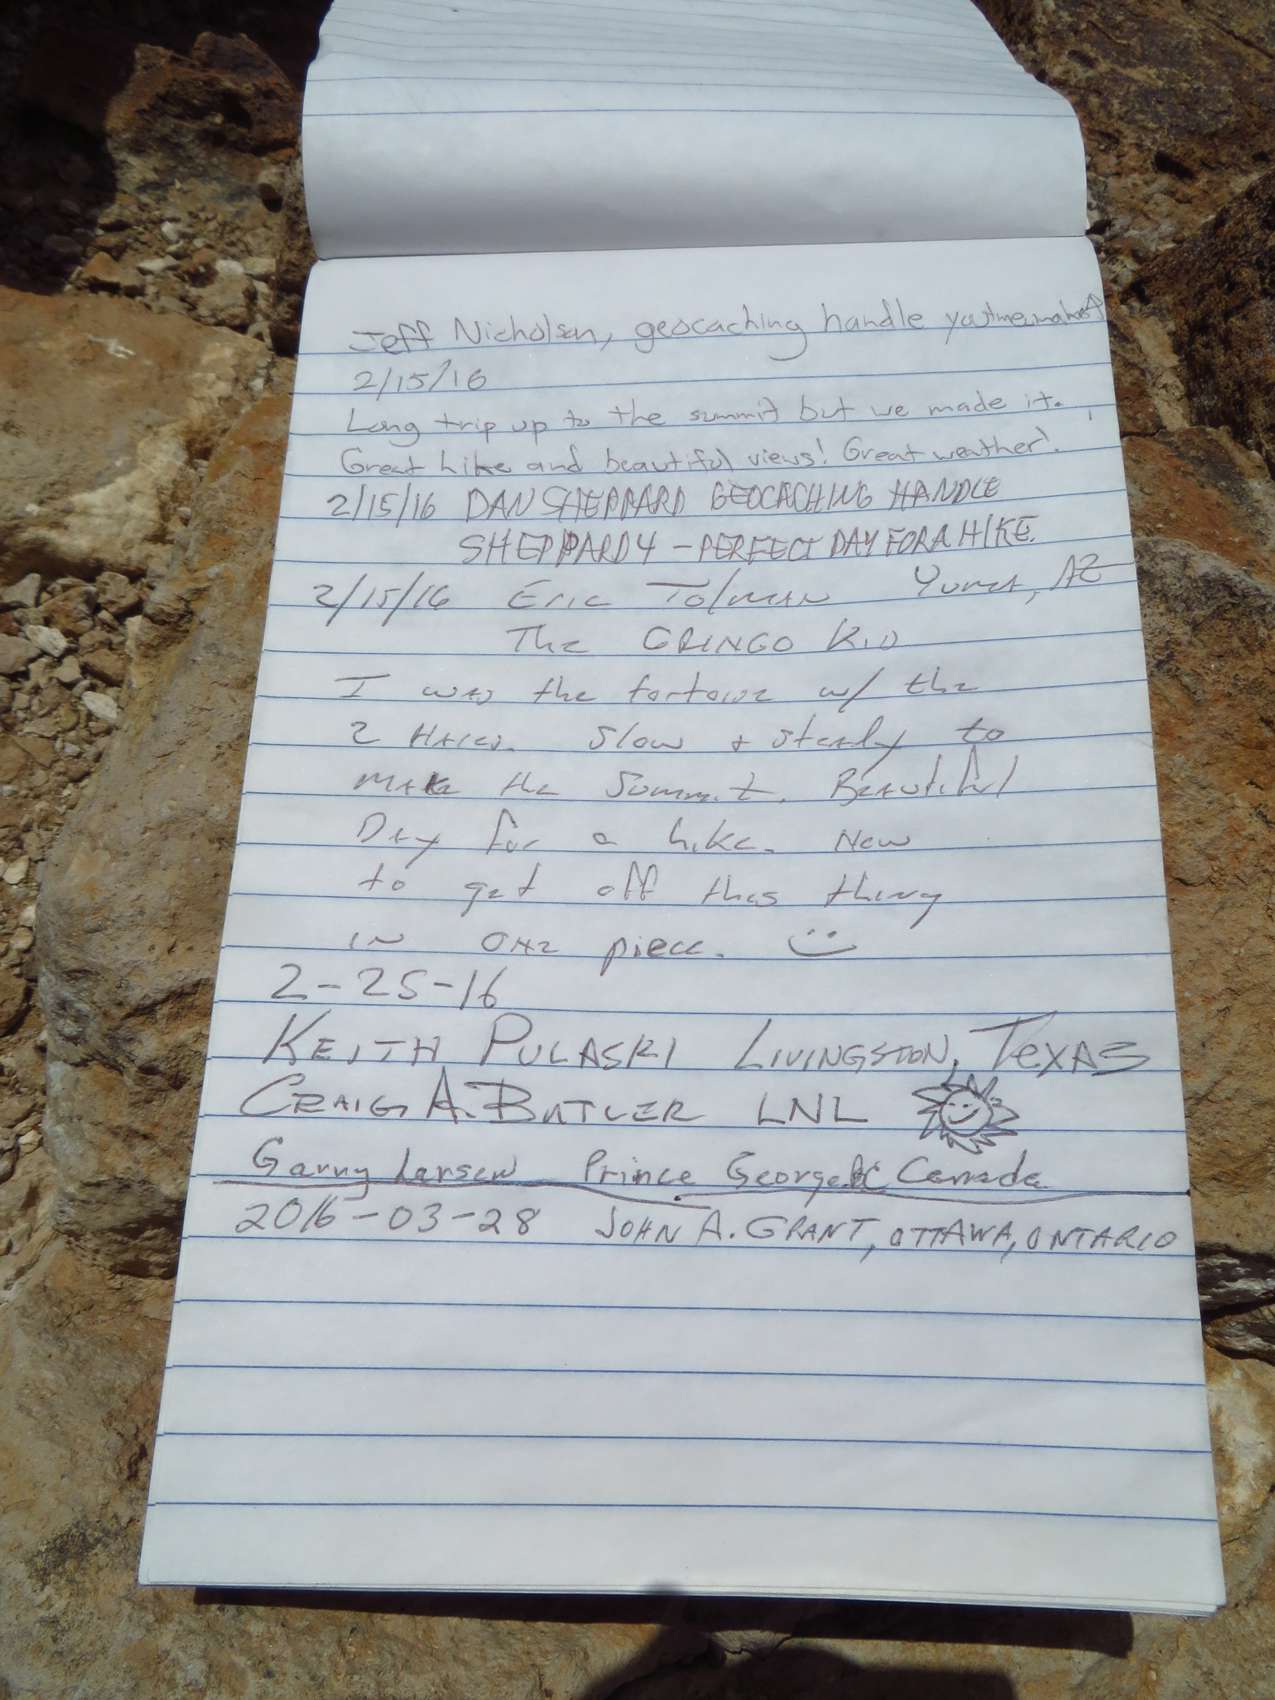 Jeff Nicholson, geocaching handle
2/15/16
Long trip up to the summit but we made it.
Great hike and beautiful views! Great weather!
2/15/16 DAN SHEPPARD GEOCACHING HANDLE
SHEPPARD4 - PERFECT DAY FOR A HIKE.
2/15/16 Eric Tolman Yuma, AZ
The GRINGO Kid
I was the tortoise w/ the
2 Hares. Slow + steady to
make the Summit. Beautiful
Day for a hike. New
to get off this thing
in one piece. :)
2-25-16
KEITH PULASKI LIVINGSTON, TEXAS
CRAIG A. BUTLER LNL
Garry Larsen Prince George BC Canada
2016-03-28 JOHN A. GRANT, OTTAWA, ONTARIO